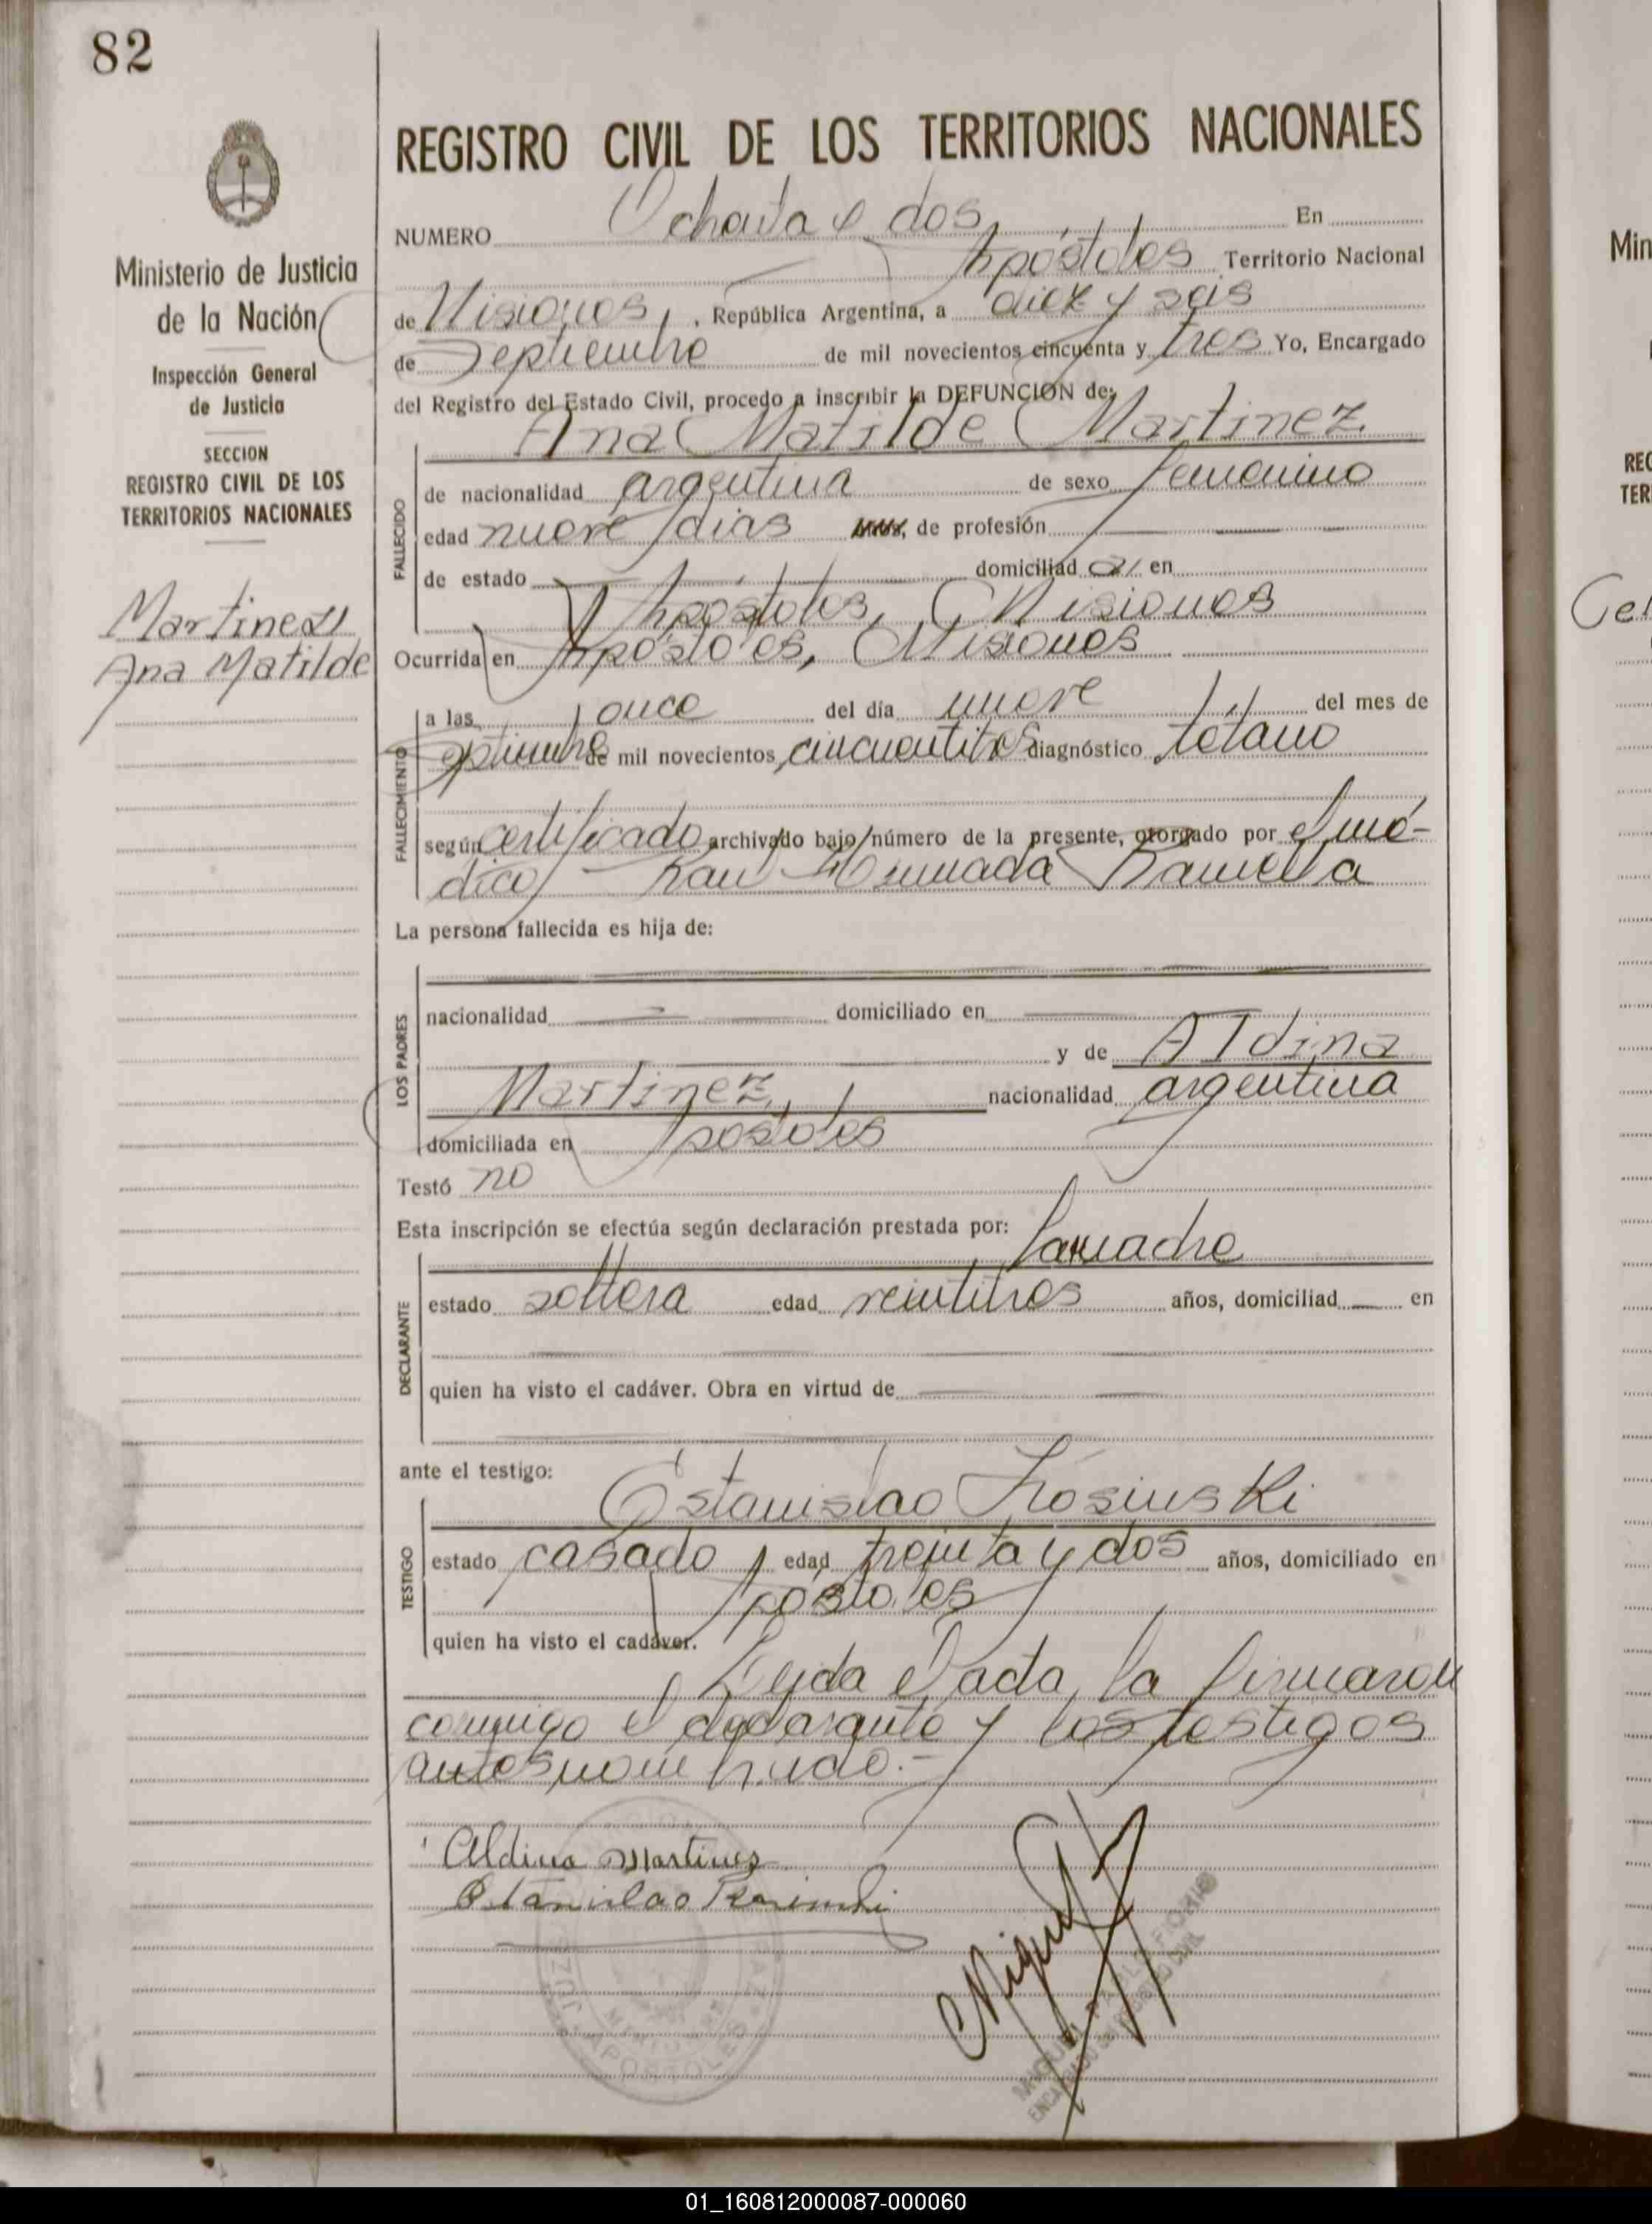 82
REGISTRO CIVIL DE LOS TERRITORIOS NACIONALES
Ministerio de Justicia
de la Nación
Inspección General
de Justicia
SECCION
REGISTRO CIVIL DE LOS
TERRITORIOS NACIONALES
Martinez
Ana Matilde
NUMERO Ochenta y dos En
Apóstoles Territorio Nacional
de Misiones, República Argentina, a diez y seis
de Septiembre de mil novecientos cincuenta y tres Yo, Encargado
del Registro del Estado Civil, procedo a inscribir la DEFUNCION de:
Ana Matilde Martinez
FALLECIDO
de nacionalidad argentina de sexo femenino
edad nueve dias años, de profesión
de estado domiciliad a en
Apóstoles, Misiones
Ocurrida en Apóstoles, Misiones
FALLECIMIENTO
a las once del día nueve del mes de
septiembre de mil novecientos cincuentitres diagnóstico tétano
según certificado archivado bajo número de la presente, otorgado por el mé-
dico Ramella
La persona fallecida es hija de:
LOS PADRES
nacionalidad domiciliado en
y de Aldina
Martinez, nacionalidad argentina
domiciliada en Apóstoles
Testó no
Esta inscripción se efectúa según declaración prestada por:
la madre
DECLARANTE
estado soltera edad veintitres años, domiciliad en
quien ha visto el cadáver. Obra en virtud de
ante el testigo:
Estanislao Kosinski
TESTIGO
estado casado edad treinta y dos años, domiciliado en
Apóstoles
quien ha visto el cadáver.
Leida el acta, la firmaron
conmigo el declarante y los testigos
antes
Aldina Martinez
Estanislao
Miguel
MIGUEL
ENCARGADO DEL REGISTRO CIVIL
APOSTOLES
Min
REG
TER
01_160812000087-000060